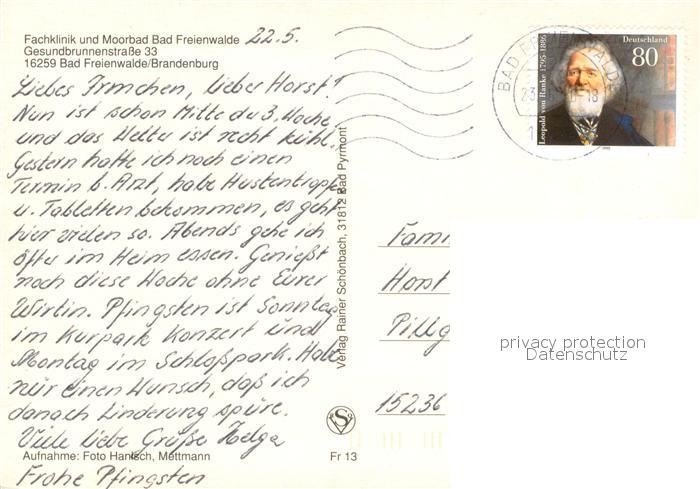 Fachklinik und Moorbad Bad Freienwalde
Gesundbrunnenstraße 33
16259 Bad Freienwalde/Brandenburg
22.5.
Liebes Irmchen, lieber Horst!
Nun ist schon Mitte der 3. Woche
und das Wetter ist recht kühl.
Gestern hatte ich noch einen
Termin b. Arzt, habe Hustentropfen
u. Tabletten bekommen, es geht
hier vielen so. Abends gehe ich
öfter im Heim essen. Genießt
noch diese Woche ohne Eurer
Wirtin. Pfingsten ist Sonntag
im Kurpark Konzert und
Montag im Schloßpark. Habe
nur einen Wunsch, daß ich
danach Linderung spüre.
Viele liebe Grüße Helga
Frohe Pfingsten
Aufnahme: Foto Hanisch, Mettmann
Fr 13
Verlag Rainer Schönbach, 31812 Bad Pyrmont
S
BAD FREIENWALDE
23
Leopold von Ranke 1795-1886
Deutschland
80
1995
Fami
Horst
Pillg
15236
privacy protection
Datenschutz